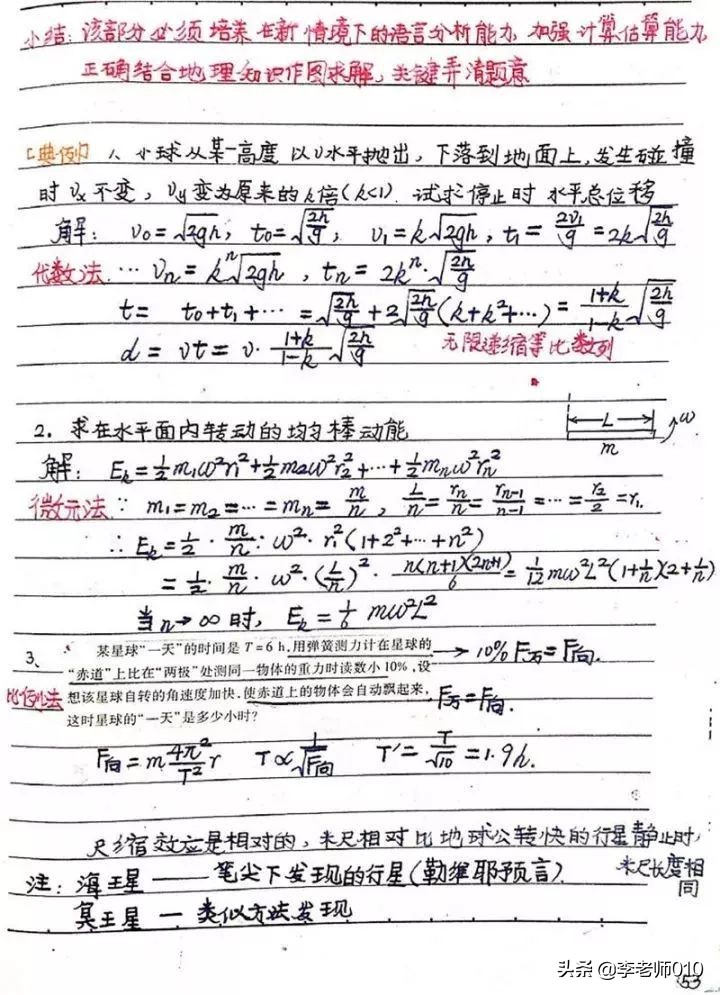 小结: 该部分必须培养在新情境下的语言分析能力 加强计算估算能力
正确结合地理知识作图求解, 关键弄清题意
[典例] 1、小球从某一高度以v水平抛出, 下落到地面上, 发生碰撞
时 vx 不变, vy 变为原来的 k倍(k<1). 试求停止时水平总位移
解: v₀=√(2gh), t₀=√(2h/g), v₁=k√(2gh), t₁=2v₁/g=2k√(2h/g)
代数法 … vₙ=kⁿ√(2gh), tₙ=2kⁿ·√(2h/g)
t= t₀+t₁+⋯ =√(2h/g)+2√(2h/g)(k+k²+⋯)=(1+k)/(1-k)√(2h/g)
d=vt=v·(1+k)/(1-k)√(2h/g) 无限递缩等比数列
2. 求在水平面内转动的均匀棒动能
L ω
m
解: Eₖ=½m₁ω²r₁²+½m₂ω²r₂²+⋯+½mₙω²rₙ²
微元法 ∵ m₁=m₂=⋯=mₙ=m/n, L/n=rₙ/n=rₙ₋₁/(n-1)=⋯=r₂/2=r₁.
∴ Eₖ=½·m/n·ω²·r₁²(1+2²+⋯+n²)
=½·m/n·ω²·(L/n)²·n(n+1)(2n+1)/6=1/12 mω²L²(1+1/n)(2+1/n)
当n→∞时, Eₖ=1/6 mω²L²
3、 某星球“一天”的时间是 T=6 h,用弹簧测力计在星球的
“赤道”上比在“两极”处测同一物体的重力时读数小 10%,设 → 10% F万=F向.
比例法 想该星球自转的角速度加快,使赤道上的物体会自动飘起来, F万=F向.
这时星球的“一天”是多少小时?
F向=m 4π²/T² r T∝1/√F向 T'=T/√10=1.9h.
尺缩效应是相对的, 米尺相对比地球公转快的行星静止时,
米尺长度相同
注: 海王星 —— 笔尖下发现的行星(勒维耶预言)
冥王星 — 类似方法发现
头条 @李老师010
53